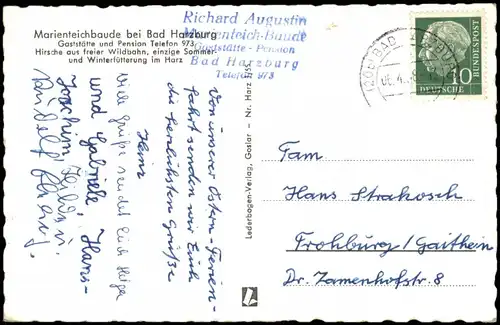 Marienteichbaude bei Bad Harzburg
Gaststätte und Pension Telefon 973
Hirsche aus freier Wildbahn, einzige Sommer-
und Winterfütterung im Harz
Richard Augustin
Marienteich-Baude
Gaststätte - Pension
Bad Harzburg
Telefon 973
BAD
10
DEUTSCHE
BUNDESPOST
Von unserer Ostern-Ferien-
fahrt senden wir Euch
die herzlichsten Grüße
Heinz
Viele Grüße sendet Euch Helga
und Gabriele, Hans-
Joachim,
Rudolf
Lederbogen-Verlag, Goslar - Nr. Harz
Fam
Hans Strakosch
Frohburg/Gaithein
Dr. Zamenhofstr. 8